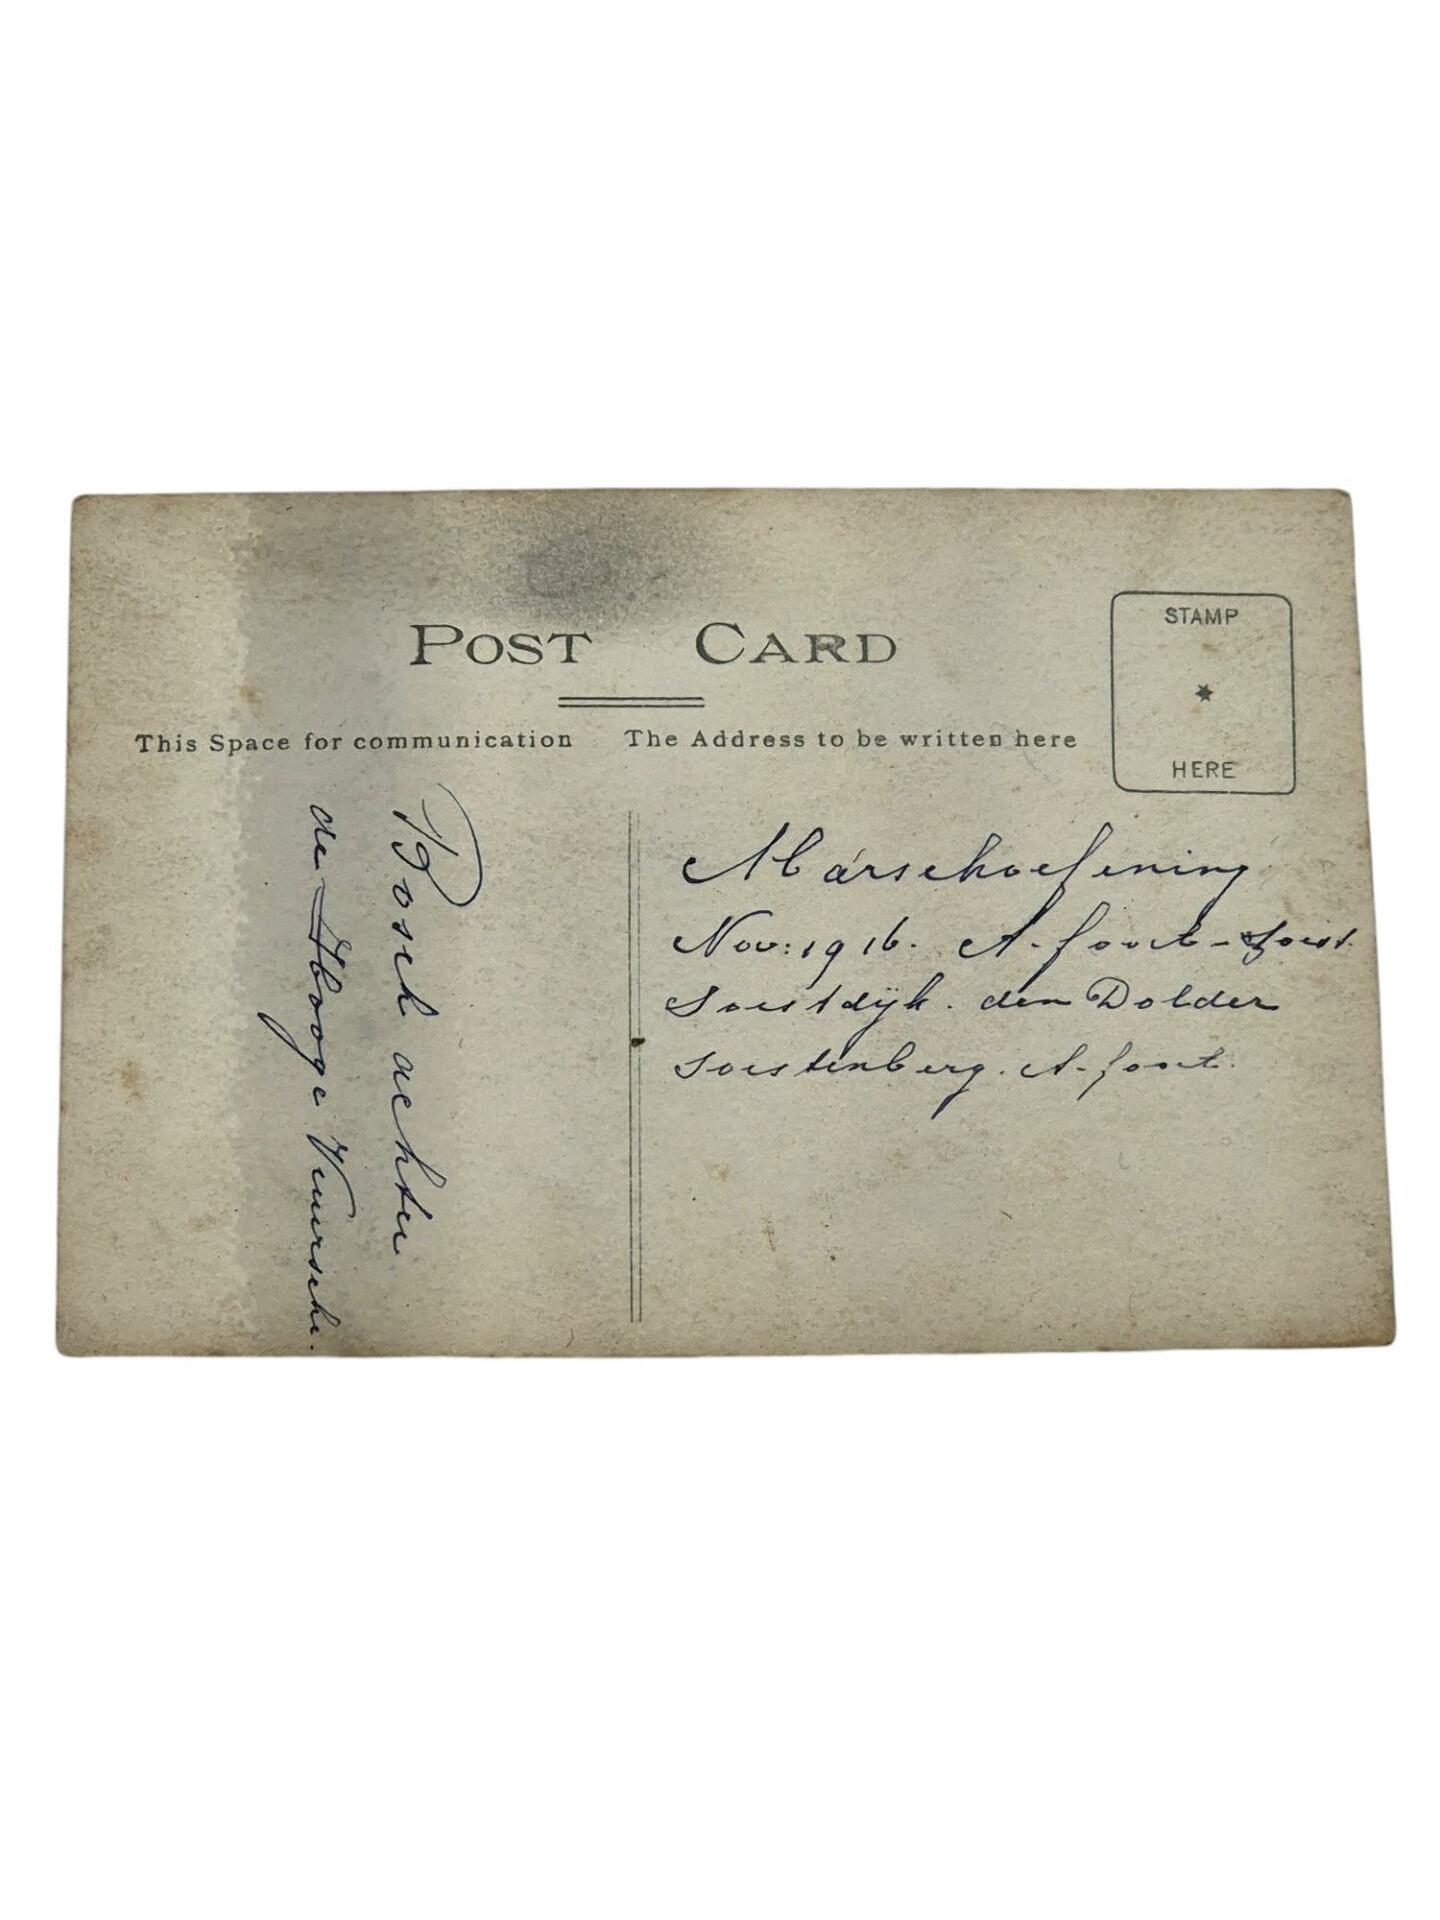 POST CARD
STAMP
HERE
This Space for communication
The Address to be written here
Bosch achter
de Hooge Vuursche.
Marschoefening
Nov: 1916. A-foort - Soest
Soestdijk. den Dolder
Soestenberg. A-foort.